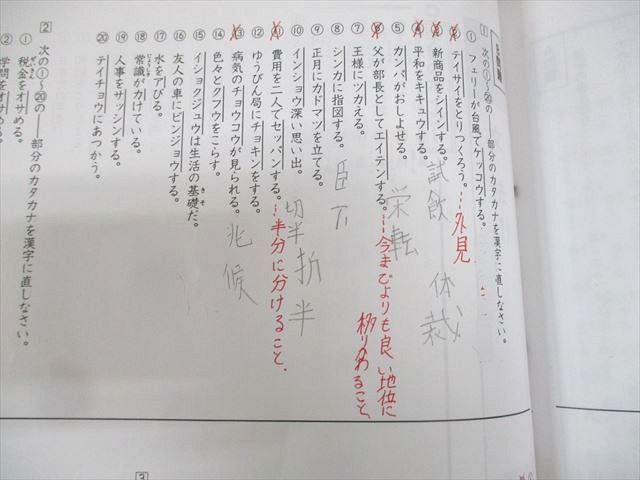 B問題
1 次の①〜⑳の――部分のカタカナを漢字に直しなさい。
① フェリーが台風でケッコウする。
② テイサイをとりつくろう。…外見
体裁
③ 新商品をシインする。
試飲
④ 平和をキキュウする。
⑤ カンパがおしよせる。
⑥ 父が部長としてエイテンする。…今までよりも良い地位に
栄転
移りかわること。
⑦ 王様にツカえる。
⑧ シンカに指図する。
臣下
⑨ 正月にカドマツを立てる。
⑩ インショウ深い思い出。
⑪ 費用を二人でセッパンする。…半分に分けること。
切半
折半
⑫ ゆうびん局にチョキンをする。
⑬ 病気のチョウコウが見られる。
兆候
⑭ 色々とクフウをこらす。
⑮ イショクジュウは生活の基礎だ。
きそ
⑯ 友人の車にビンジョウする。
⑰ 水をアびる。
⑱ 常識がカけている。
じょうしき
⑲ 人事をサッシンする。
⑳ テイチョウにあつかう。
2 次の①〜⑳の――部分のカタカナを漢字に直しなさい。
① 税金をオサめる。
ぜいきん
② 学問をオサめる。
3